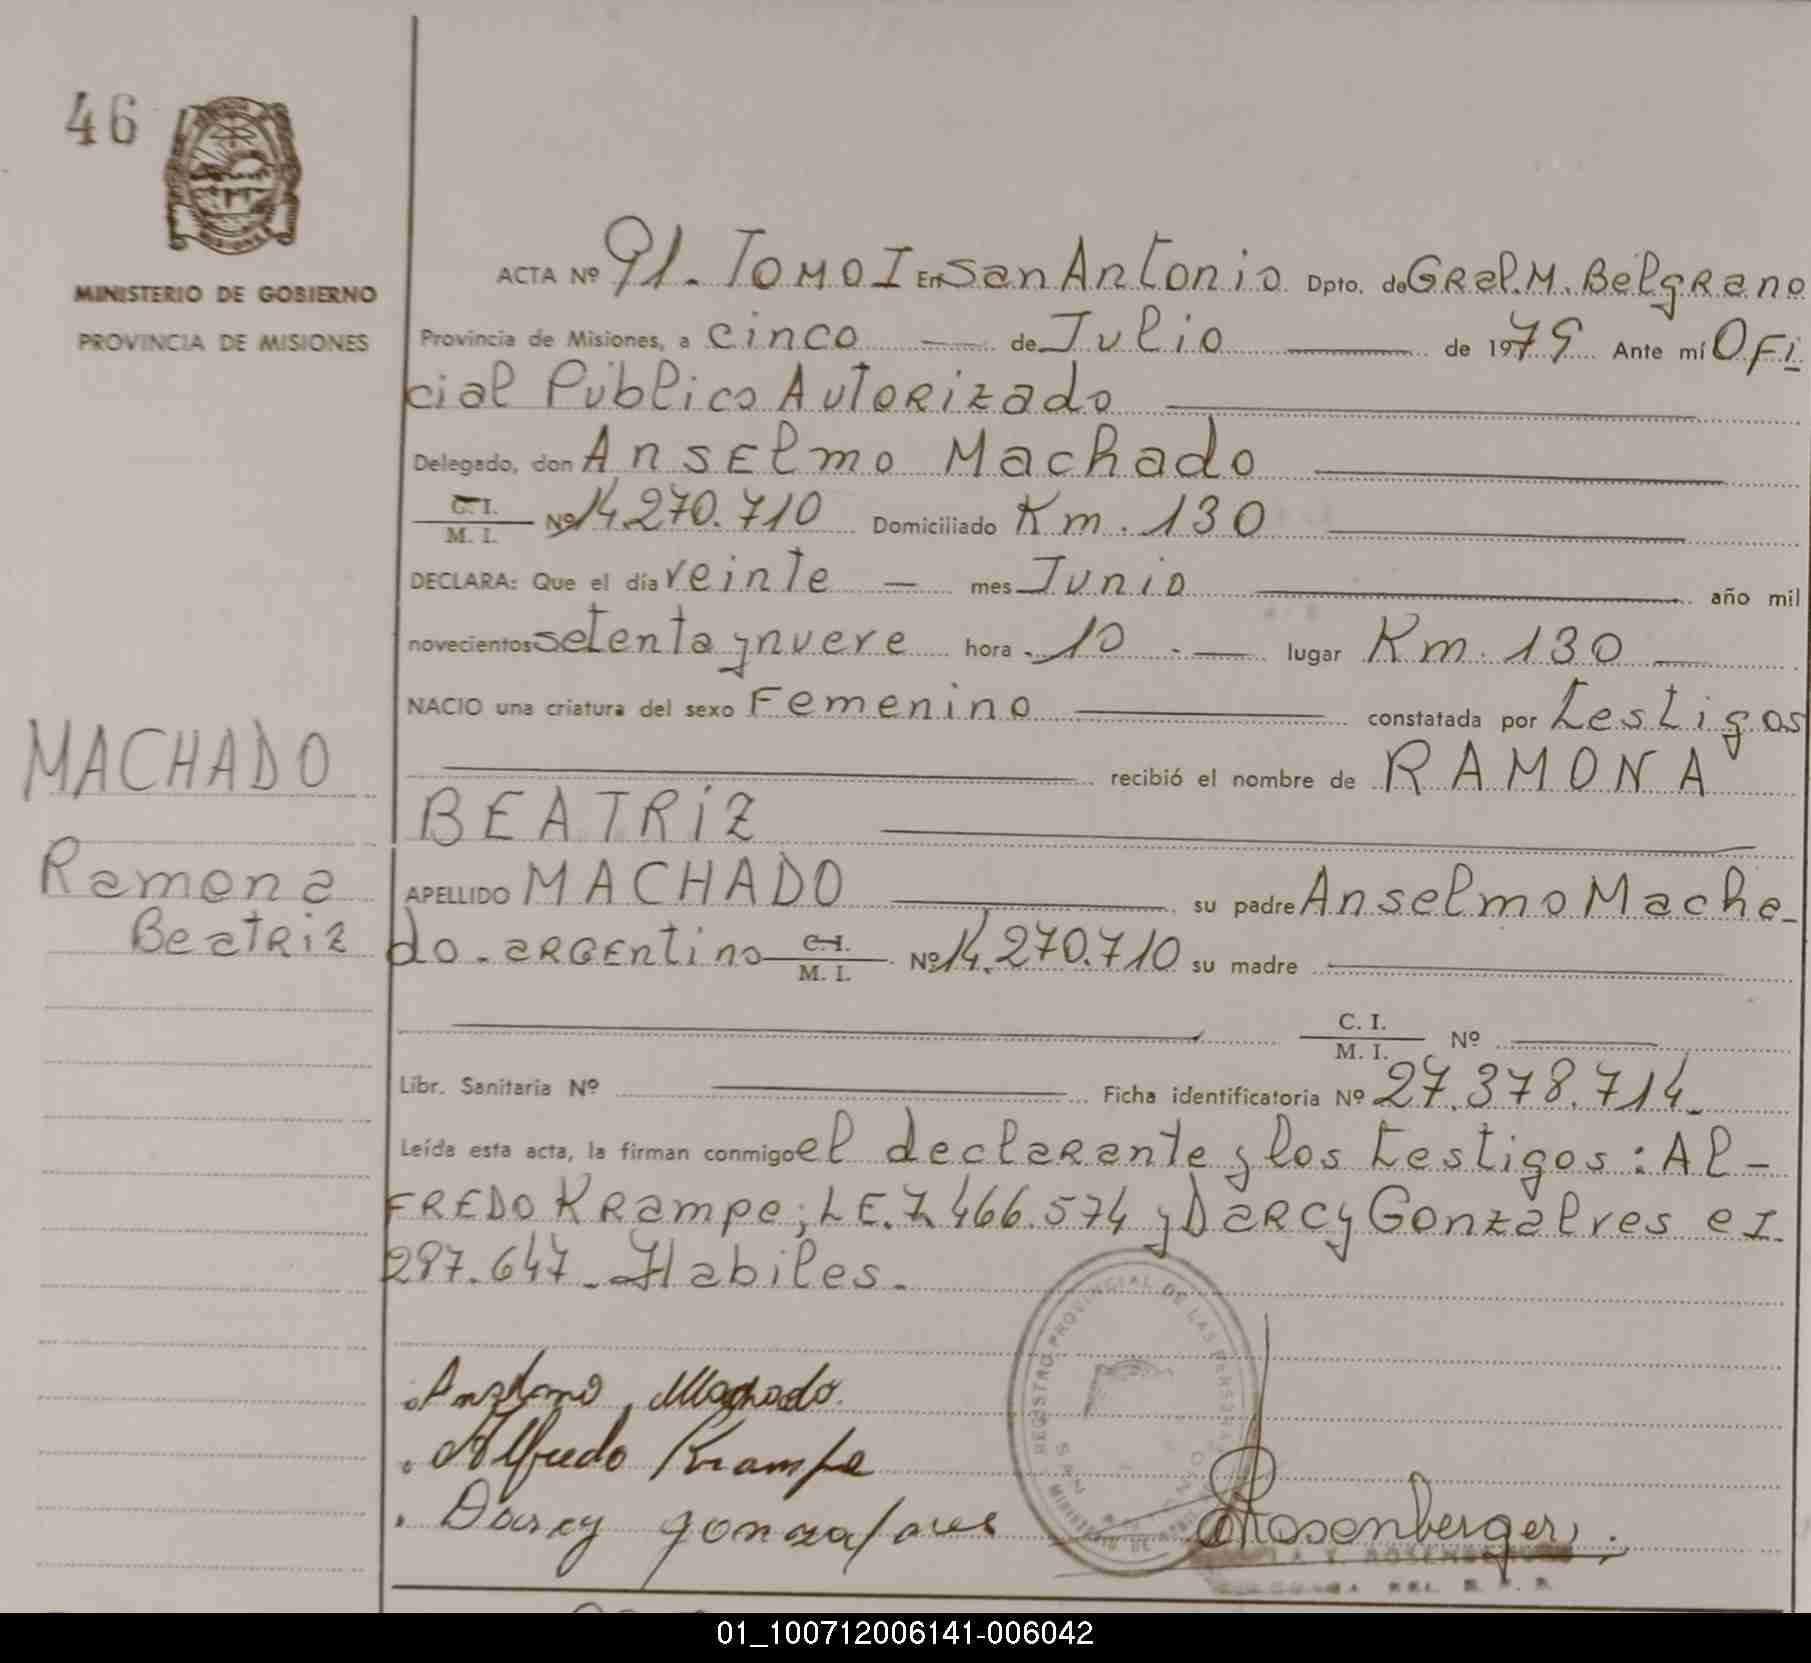 46
MINISTERIO DE GOBIERNO
PROVINCIA DE MISIONES
ACTA Nº 91. TOMO I En San Antonio Dpto. de GRal. M. Belgrano
Provincia de Misiones, a cinco de Julio de 1979 Ante mí Ofi
cial Público Autorizado
Delegado, don Anselmo Machado
C. I. / M. I. Nº 14.270.710 Domiciliado Km. 130
DECLARA: Que el día veinte — mes Junio año mil
novecientos setenta y nueve hora 10 . — lugar Km. 130
NACIO una criatura del sexo Femenino constatada por testigos
recibió el nombre de RAMONA
BEATRiZ
APELLIDO MACHADO su padre Anselmo Macha-
do. argentino C. I. / M. I. Nº 14.270.710 su madre
C. I. / M. I. Nº
Libr. Sanitaria Nº Ficha identificatoria Nº 27.378.714.
Leída esta acta, la firman conmigo el declarante y los testigos: Al-
FREDO Krampe; LE. 7.466.574 y Darcy Gonzalves CI.
287.647. Habiles.
MACHADO
Ramona
Beatriz
Anselmo Machado.
Alfredo Krampe
Darcy gonzalves
Rosenberger
REGISTRO PROVINCIAL DE LAS PERSONAS
SAN
01_100712006141-006042